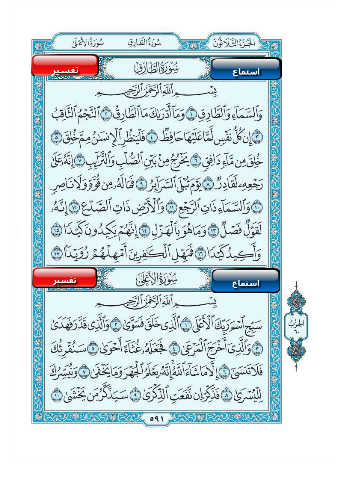 الجزء الثلاثون سورة الطارق سورة الأعلى
تفسير سورة الطارق استماع
بِسْمِ اللَّهِ الرَّحْمَٰنِ الرَّحِيمِ
وَالسَّمَاءِ وَالطَّارِقِ ١ وَمَا أَدْرَاكَ مَا الطَّارِقُ ٢ النَّجْمُ الثَّاقِبُ
٣ إِن كُلُّ نَفْسٍ لَّمَّا عَلَيْهَا حَافِظٌ ٤ فَلْيَنظُرِ الْإِنسَانُ مِمَّ خُلِقَ ٥
خُلِقَ مِن مَّاءٍ دَافِقٍ ٦ يَخْرُجُ مِن بَيْنِ الصُّلْبِ وَالتَّرَائِبِ ٧ إِنَّهُ عَلَىٰ
رَجْعِهِ لَقَادِرٌ ٨ يَوْمَ تُبْلَى السَّرَائِرُ ٩ فَمَا لَهُ مِن قُوَّةٍ وَلَا نَاصِرٍ
١٠ وَالسَّمَاءِ ذَاتِ الرَّجْعِ ١١ وَالْأَرْضِ ذَاتِ الصَّدْعِ ١٢ إِنَّهُ
لَقَوْلٌ فَصْلٌ ١٣ وَمَا هُوَ بِالْهَزْلِ ١٤ إِنَّهُمْ يَكِيدُونَ كَيْدًا ١٥
وَأَكِيدُ كَيْدًا ١٦ فَمَهِّلِ الْكَافِرِينَ أَمْهِلْهُمْ رُوَيْدًا ١٧
تفسير سورة الأعلى استماع
بِسْمِ اللَّهِ الرَّحْمَٰنِ الرَّحِيمِ
سَبِّحِ اسْمَ رَبِّكَ الْأَعْلَى ١ الَّذِي خَلَقَ فَسَوَّىٰ ٢ وَالَّذِي قَدَّرَ فَهَدَىٰ
٣ وَالَّذِي أَخْرَجَ الْمَرْعَىٰ ٤ فَجَعَلَهُ غُثَاءً أَحْوَىٰ ٥ سَنُقْرِئُكَ
فَلَا تَنسَىٰ ٦ إِلَّا مَا شَاءَ اللَّهُ إِنَّهُ يَعْلَمُ الْجَهْرَ وَمَا يَخْفَىٰ ٧ وَنُيَسِّرُكَ
لِلْيُسْرَىٰ ٨ فَذَكِّرْ إِن نَّفَعَتِ الذِّكْرَىٰ ٩ سَيَذَّكَّرُ مَن يَخْشَىٰ ١٠
٥٩١
الحزب
٦٠